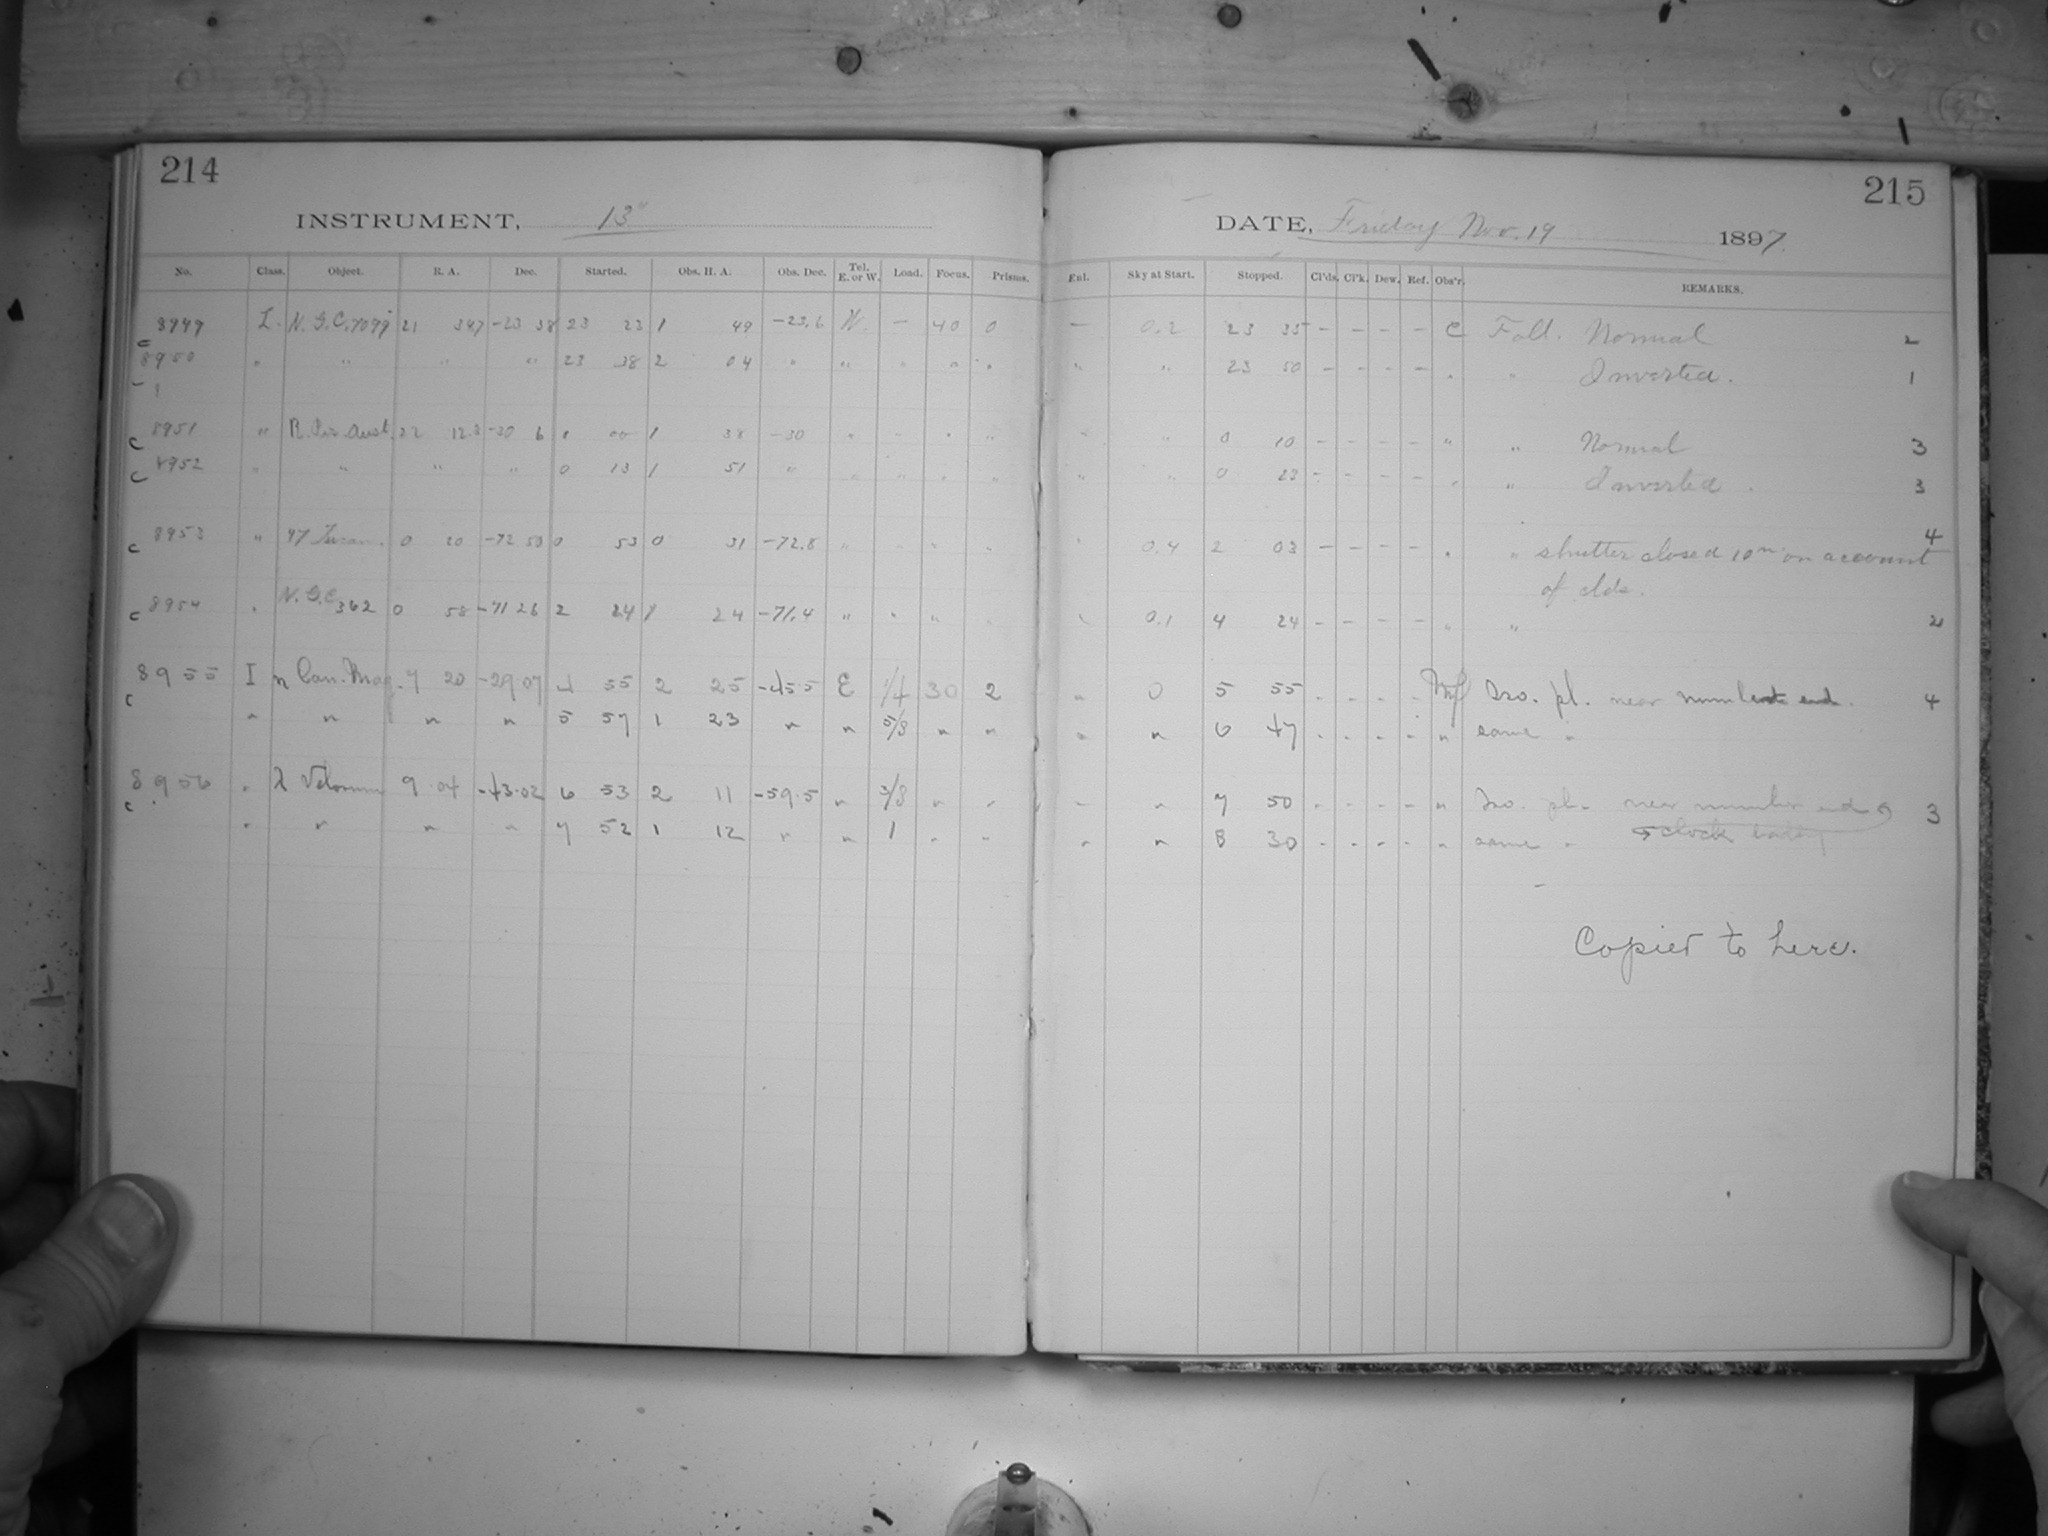 214
INSTRUMENT, 13"
No. Class. Object. R. A. Dec. Started. Obs. H. A. Obs. Dec. Tel. E. or W. Load. Focus. Prisms.
8949 L. N.G.C. 7099 21 34.7 -23 38 23 23 1 49 -23.6 W. - 40 0
c
8950 " " " " 23 38 2 04 " " " " "
c 8951 " R. Pis Aust. 22 12.3 -30 6 0 00 1 38 -30 " - " "
c 8952 " " " " 0 13 1 51 " " " " "
c 8953 " 47 Tucan. 0 20 -72 50 0 53 0 31 -72.8 " " " "
c 8954 " N.G.C. 362 0 58 -71 26 2 24 1 24 -71.4 " " " "
8955 I η Can. Maj. 7 20 -29 07 4 55 2 25 -45.5 E 1/4 30 2
c
" " " " 5 57 1 23 " " 5/8 " "
8956 " λ Velorum 9 04 -43.02 6 53 2 11 -59.5 " 3/8 " "
c
" " " " 7 52 1 12 " " 1 " "
215
DATE, Friday Nov. 19 1897.
Enl. Sky at Start. Stopped. Cl'ds. Cl'k. Dew. Ref. Obs'r. REMARKS.
- 0.2 23 35 - - - - C Foll. Normal 2
" " 23 50 - - - - " " Inverted. 1
" " 0 10 - - - - " " Normal 3
" " 0 23 - - - - " " Inverted. 3
" 0.4 2 03 - - - - " " shutter closed 10m on account 4
of clds.
" 0.1 4 24 - - - - " " 2
" 0 5 55 - - - - pl. near number end. 4
" " 6 47 - - - - " same "
- " 7 50 - - - - " pl. near number end 3
clock
" " 8 30 - - - - " same "
Copied to here.